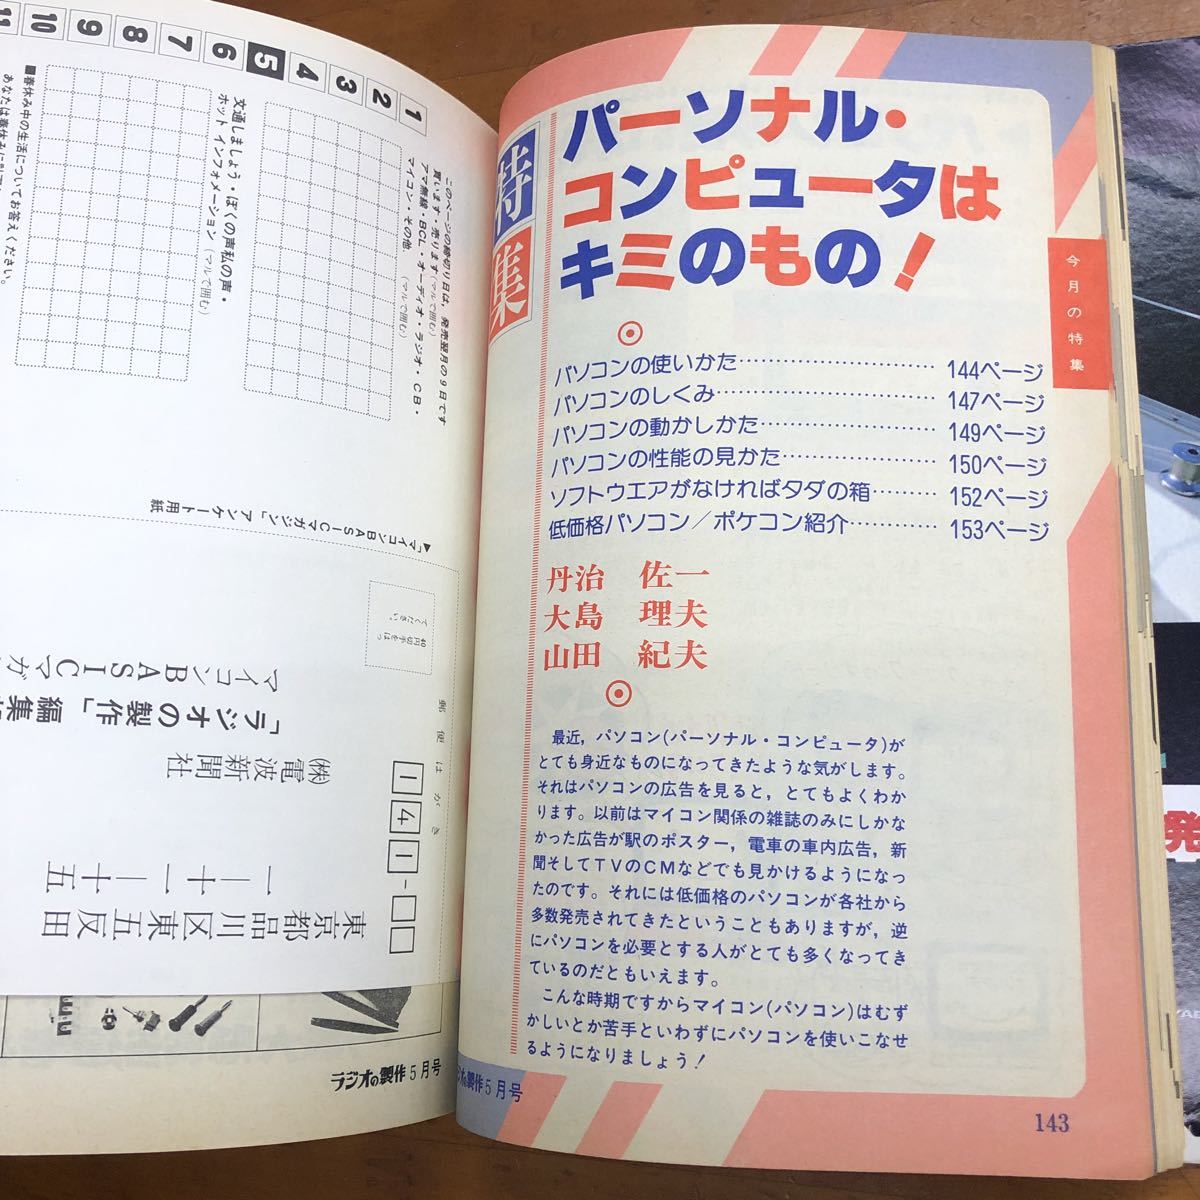 特集
パーソナル・
コンピュータは
キミのもの!
今月の特集
パソコンの使いかた…………………… 144ページ
パソコンのしくみ……………………… 147ページ
パソコンの動かしかた………………… 149ページ
パソコンの性能の見かた……………… 150ページ
ソフトウエアがなければタダの箱……… 152ページ
低価格パソコン/ポケコン紹介………… 153ページ
丹治 佐一
大島 理夫
山田 紀夫
最近,パソコン(パーソナル・コンピュータ)が
とても身近なものになってきたような気がします。
それはパソコンの広告を見ると,とてもよくわか
ります。以前はマイコン関係の雑誌のみにしかな
かった広告が駅のポスター,電車の車内広告,新
聞そしてTVのCMなどでも見かけるようになっ
たのです。それには低価格のパソコンが各社から
多数発売されてきたということもありますが,逆
にパソコンを必要とする人がとても多くなってき
ているのだともいえます。
こんな時期ですからマイコン(パソコン)はむず
かしいとか苦手といわずにパソコンを使いこなせ
るようになりましょう!
の製作5月号
143
1
2
3
4
5
6
7
8
9
10
11
このページの締切り日は,発売翌月の9日です
買います・売ります(マルで囲む)
アマ無線・BCL・オーディオ・ラジオ・CB・
マイコン・その他。 (マルで囲む)
文通しましょう・ぼくの声私の声・
ホットインフォメーション(マルで囲む)
■春休み中の生活についてお答えください。
「マイコンBASICマガジン」アンケート用紙
40円切手をはってください。
郵便はがき
141-
東京都品川区東五反田
一—十一—十五
㈱電波新聞社
「ラジオの製作」編集
マイコンBASICマガ
ラジオの製作5月号
発